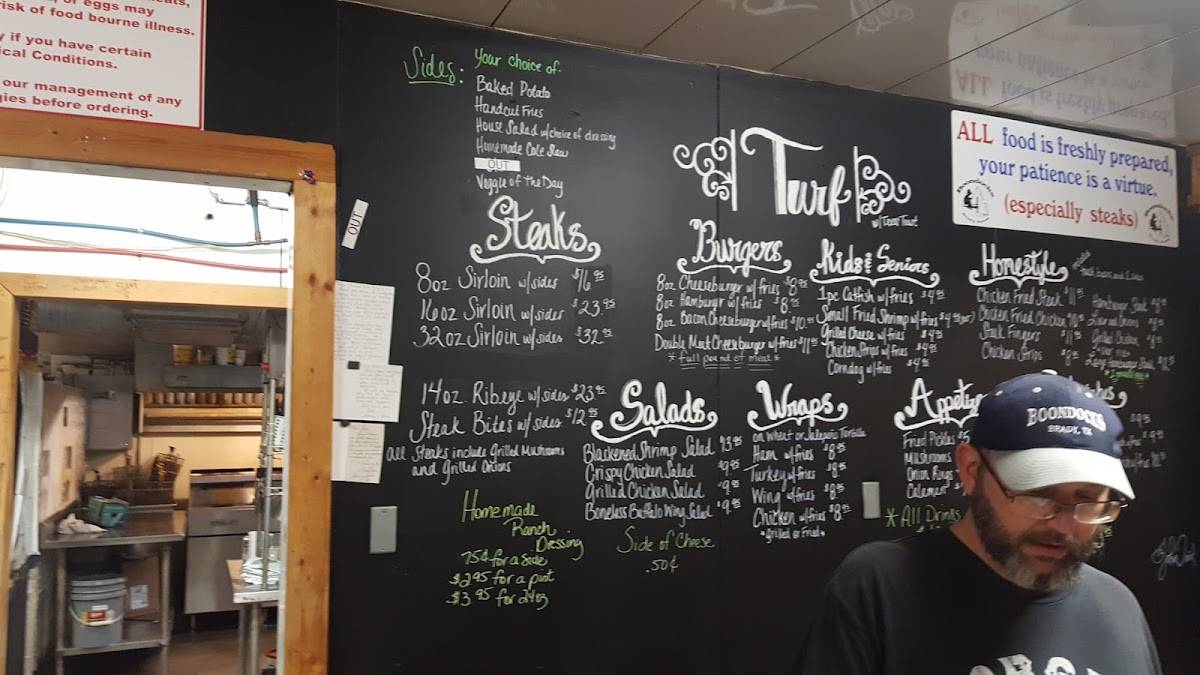 or eggs may
risk of food bourne illness.
if you have certain
ical Conditions.
our management of any
gies before ordering.
Sides: Your choice of:
Baked Potato
Handcut Fries
House Salad w/choice of dressing
Homemade Cole Slaw
OUT
Veggie of the Day
OUT
Turf
w/Texas Toast
ALL food is freshly prepared,
your patience is a virtue.
(especially steaks)
Steaks
8oz Sirloin w/sides $16.95
16oz Sirloin w/sides $23.95
32oz Sirloin w/sides $32.95
14oz Ribeye w/sides $23.95
Steak Bites w/sides $12.95
all Steaks include Grilled Mushrooms
and Grilled Onions
Homemade
Ranch
Dressing
75¢ for a side
$2.95 for a pint
$3.95 for 24oz
Burgers
8oz Cheeseburger w/fries $8.95
8oz Hamburger w/fries $8.75
8oz Bacon Cheeseburger w/fries $10.95
Double Meat Cheeseburger w/fries $11.95
*full pound of meat*
Kids & Seniors
1pc Catfish w/fries $4.95
Small Fried Shrimp w/fries $4.95
Grilled Cheese w/fries $4.95
Chicken Strips w/fries $4.95
Corndog w/fries $4.95
Homestyle
Chicken Fried Steak $11
Chicken Fried Chicken $10
Steak Fingers $11
Chicken Strips
Hamburger Steak
Liver and Onions
Grilled Chicken
Salads
Blackened Shrimp Salad $13.95
Crispy Chicken Salad $9.95
Grilled Chicken Salad $9.95
Boneless Buffalo Wing Salad $9.95
Side of Cheese
.50¢
Wraps
on Wheat or Jalapeño Tortilla
Ham w/fries $8.95
Turkey w/fries $8.95
Wing w/fries $8.95
Chicken w/fries $8.95
*grilled or fried*
Appetiz
Fried Pickles
Mushrooms
Onion Rings
Calamari
*All Drinks
BOONDOCKS
BRADY, TX